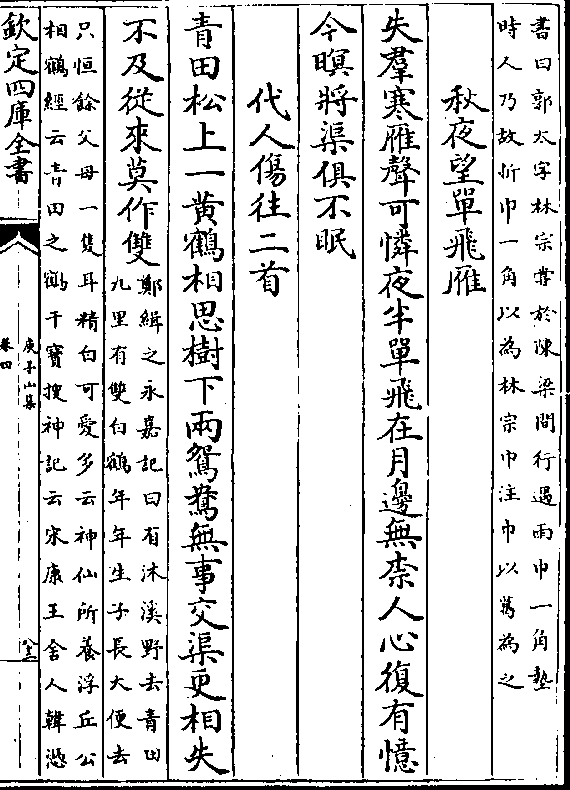 書曰郭太字林宗嘗於陳梁間行遇雨巾一角墊
時人乃故折巾一角以為林宗巾注巾以葛為之
秋夜望單飛雁
失羣寒雁聲可憐夜半單飛在月邊無柰人心復有憶
今暝將渠俱不眠
代人傷往二首
青田松上一黄鶴相思樹下兩鴛鴦無事交渠更相失
不及從來莫作雙
鄭緝之永嘉記曰有沐溪野去青田
九里有雙白鶴年年生子長大便去
只恒餘父母一隻耳精白可愛多云神仙所養浮丘公
相鶴經云青田之鶴干寶搜神記云宋康王舍人韓憑
欽定四庫全書
庾子山集
卷四